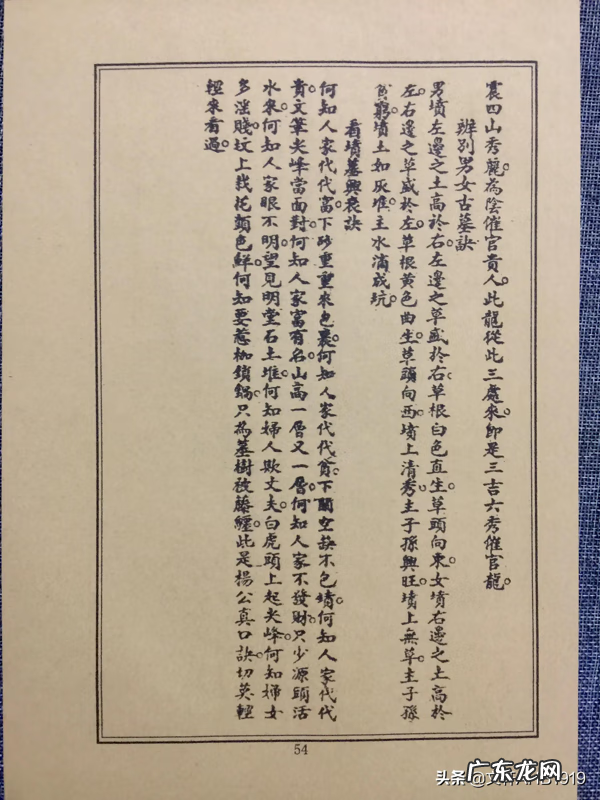 震四山秀麗。為陰催官貴人。此龍從此三處來。即是三吉六秀催官龍。
辨別男女古墓訣
男墳左邊之土高於右。左邊之草盛於右。草根白色直生。草頭向東。女墳右邊之土高於
左。右邊之草盛於左。草根黃色曲生。草頭向西。墳上清秀。主子孫興旺。墳上無草。主子孫
貧窮。墳土如灰堆。主水滿成坑。
看墳墓興衰訣
何知人家代代富。下砂重重來包裹。何知人家代代貧。下關空缺不包墳。何知人家代代
貴。文筆尖峰當面對。何知人家富有名。山高一層又一層。何知人家不發財。只少源頭活
水來。何知人家眼不明。望見明堂石土堆。何知婦人欺丈夫。白虎頭上起尖峰。何知婦女
多淫賤。坟上栽花顏色鮮。何知要惹枷鎖鍋。只為墓樹被藤纏。此是楊公真口訣。切莫輕
輕來看過。
54
广东龙网
头条